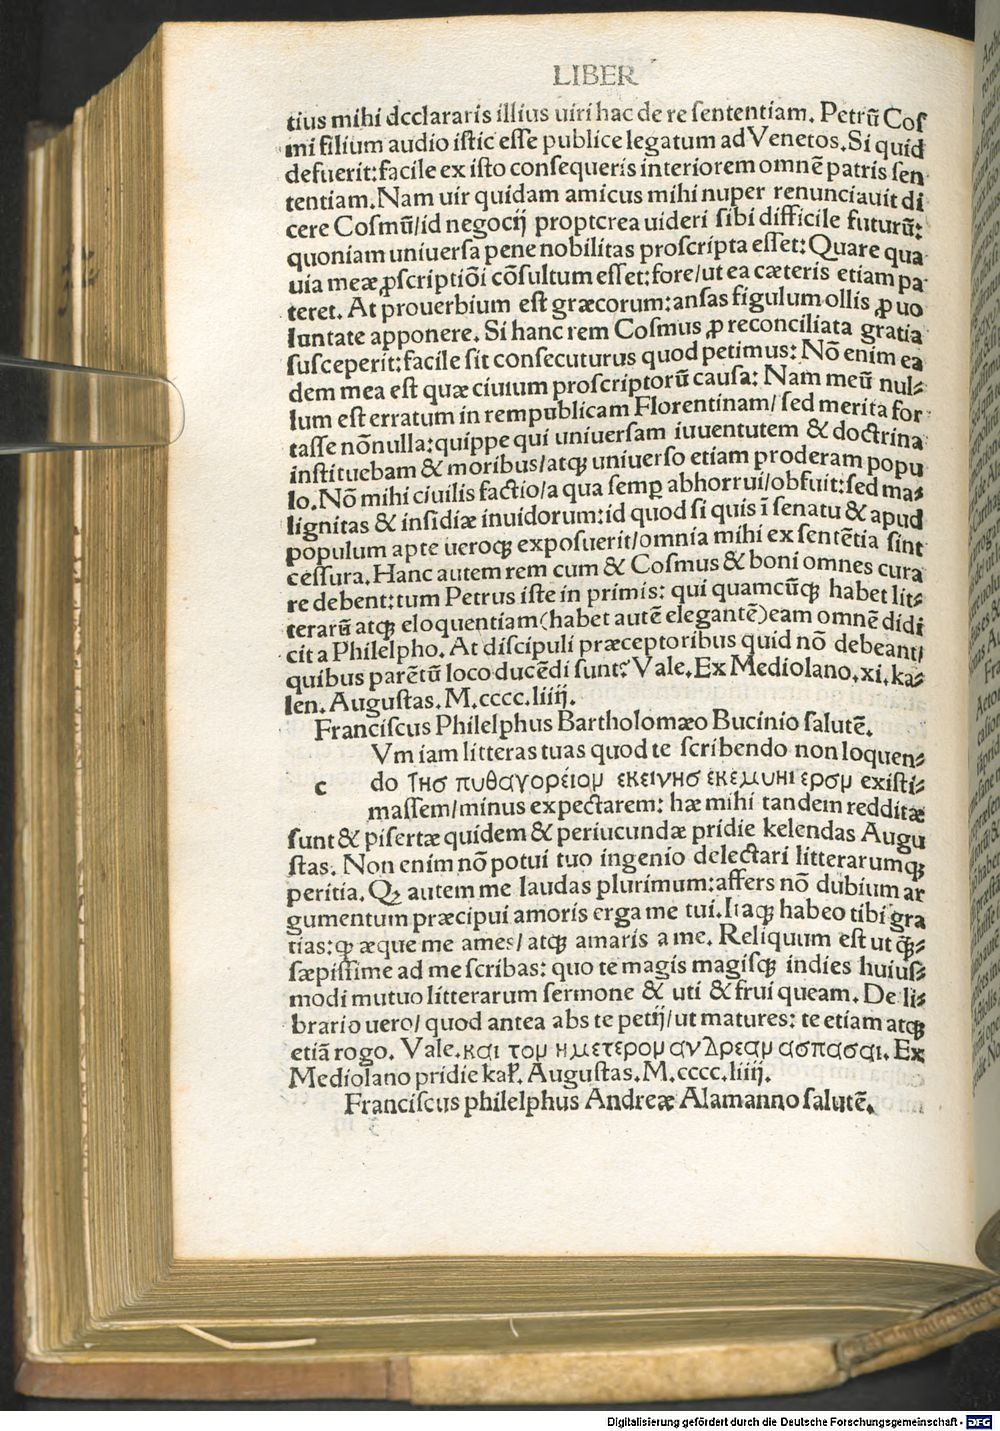 LIBER
tius mihi dcclararis illius uiri hac de re ſententiam. Petrū Coſ
mi filium audio iſtic eſſe publice legatum ad Venetos. Si quid
defuerit: facile ex iſto conſequeris interiorem omnē patris ſen
tentiam. Nam uir quidam amicus mihi nuper renunciauit di
cere Coſmū/ id negocĳ proptcrea uideri ſibi difficile futurū:
quoniam uniuerſa pene nobilitas proſcripta eſſet: Quare qua
uia meæ ꝓſcriptiōi cōſultum eſſet: fore/ ut ea cæteris etiam pa
teret. At prouerbium eſt græcorum: anſas figulum ollis ꝓ uo
luntate apponere. Si hanc rem Coſmus ꝓ reconciliata gratia
ſuſceperit: facile ſit conſecuturus quod petimus: Nō enim ea
dem mea eſt quæ ciuium proſcriptorū cauſa: Nam meū nul⸗
lum eſt erratum in rempublicam Florentinam/ ſed merita for
taſſe nōnulla: quippe qui uniuerſam iuuentutem & doctrina
inſtituebam & moribus/ atqꝫ uniuerſo etiam proderam popu
lo. Nō mihi ciuilis factio/ a qua ſemꝑ abhorrui/ obfuit: ſed ma⸗
lignitas & inſidiæ inuidorum: id quod ſi quis ī ſenatu & apud
populum apte ueroqꝫ expoſuerit/ omnia mihi ex ſentētia ſint
ceſſura. Hanc autem rem cum & Coſmus & boni omnes cura
re debent: tum Petrus iſte in primis: qui quamcūqꝫ habet lit⸗
terarū atqꝫ eloquentiam (habet autē elegantē) eam omnē didi
cit a Philelpho. At diſcipuli præceptoribus quid nō debeant/
quibus parētū loco ducēdi ſunt? Vale. Ex Mediolano. xi. ka⸗
len. Auguſtas. M. cccc. liiĳ.
Franciſcus Philelphus Bartholomæo Bucinio ſalutē.
Vm iam litteras tuas quod te ſcribendo non loquen⸗
c do τησ πυθαγορείομ εκεινησ εκεμυηιερσμ exiſti⸗
maſſem/ minus expectarem: hæ mihi tandem redditæ
ſunt & piſertæ quidem & periucundæ pridie kelendas Augu
ſtas. Non enim nō potui tuo ingenio delectari litterarumqꝫ
peritia. Qꝫ autem me laudas plurimum: affers nō dubium ar
gumentum præcipui amoris erga me tui. Itaqꝫ habeo tibi gra
tias: qꝫ æque me ames/ atqꝫ amaris a me. Reliquum eſt ut qꝫ̄⸗
ſæpiſſime ad me ſcribas: quo te magis magiſqꝫ indies huiuſ⸗
modi mutuo litterarum ſermone & uti & frui queam. De li⸗
brario uero/ quod antea abs te petĳ/ ut matures: te etiam atqꝫ
etiā rogo. Vale. και τομ ημετερομ ανδρεαμ ασπασαι. Ex
Mediolano pridie kal̓. Auguſtas. M. cccc. liiĳ.
Franciſcus philelphus Andreæ Alamanno ſalutē.
Digitalisierung gefördert durch die Deutsche Forschungsgemeinschaft - DFG